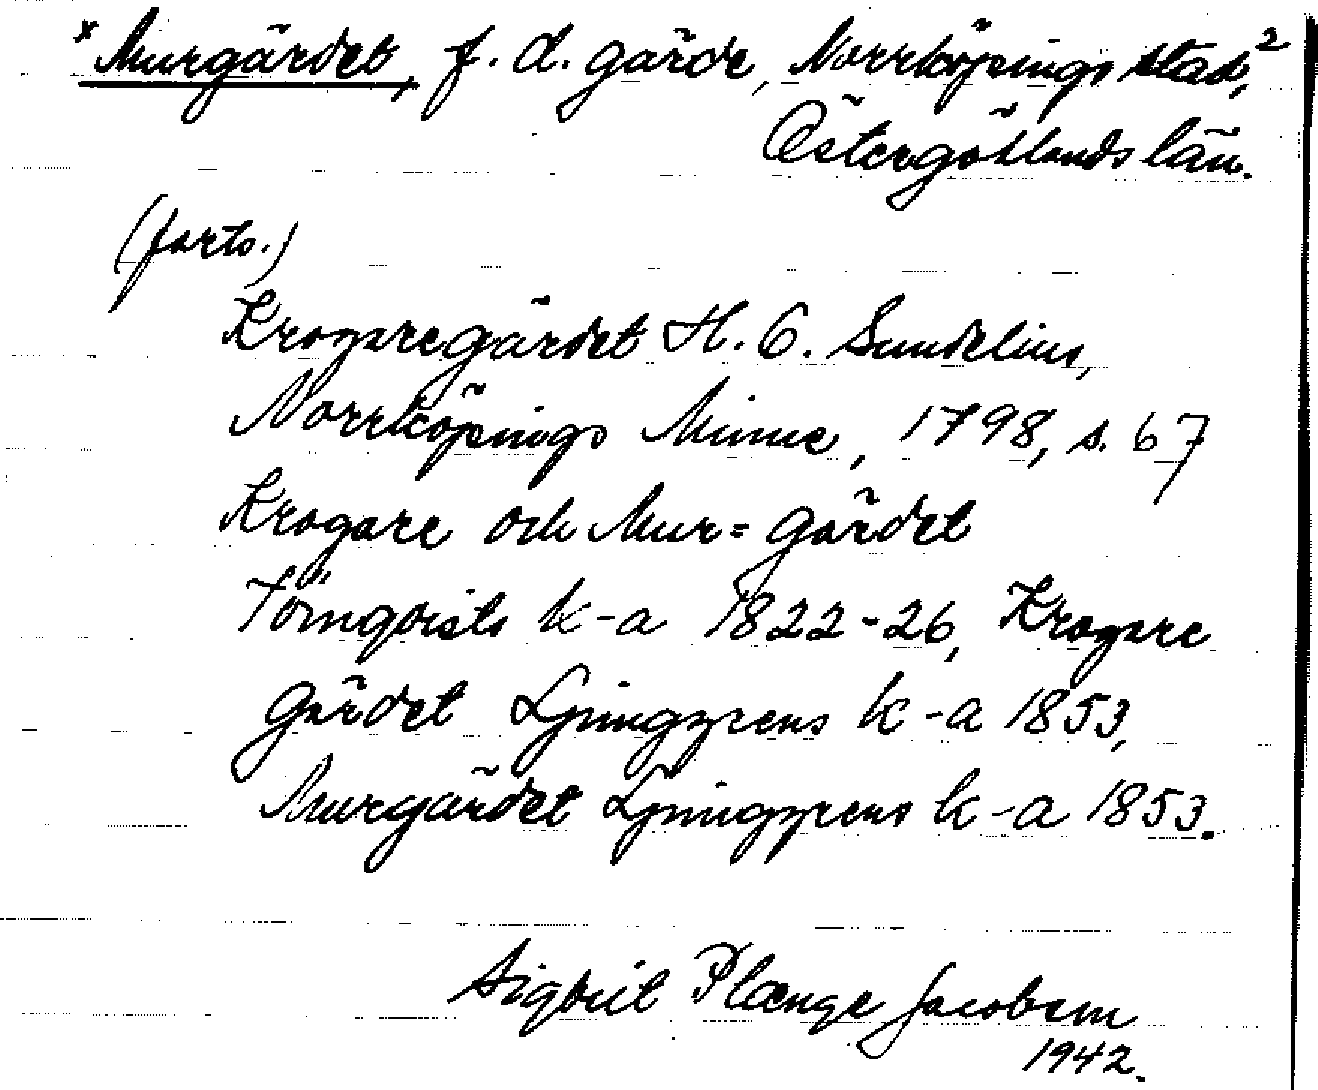 * Murgärdet, f. d. gärde, Norrköpings stad, 2
Östergötlands län.
(forts.)
Krogaregärdet H. O. Sundelius,
Norrköpings Minne, 1798, s. 67
Krogare och Mur= gärdet
Törnqvists k-a 1822-26, Krogare
Gärdet Ljunggrens k-a 1853,
Murgärdet Ljunggrens k-a 1853.
Sigbrit Plænge Jacobson
1942.